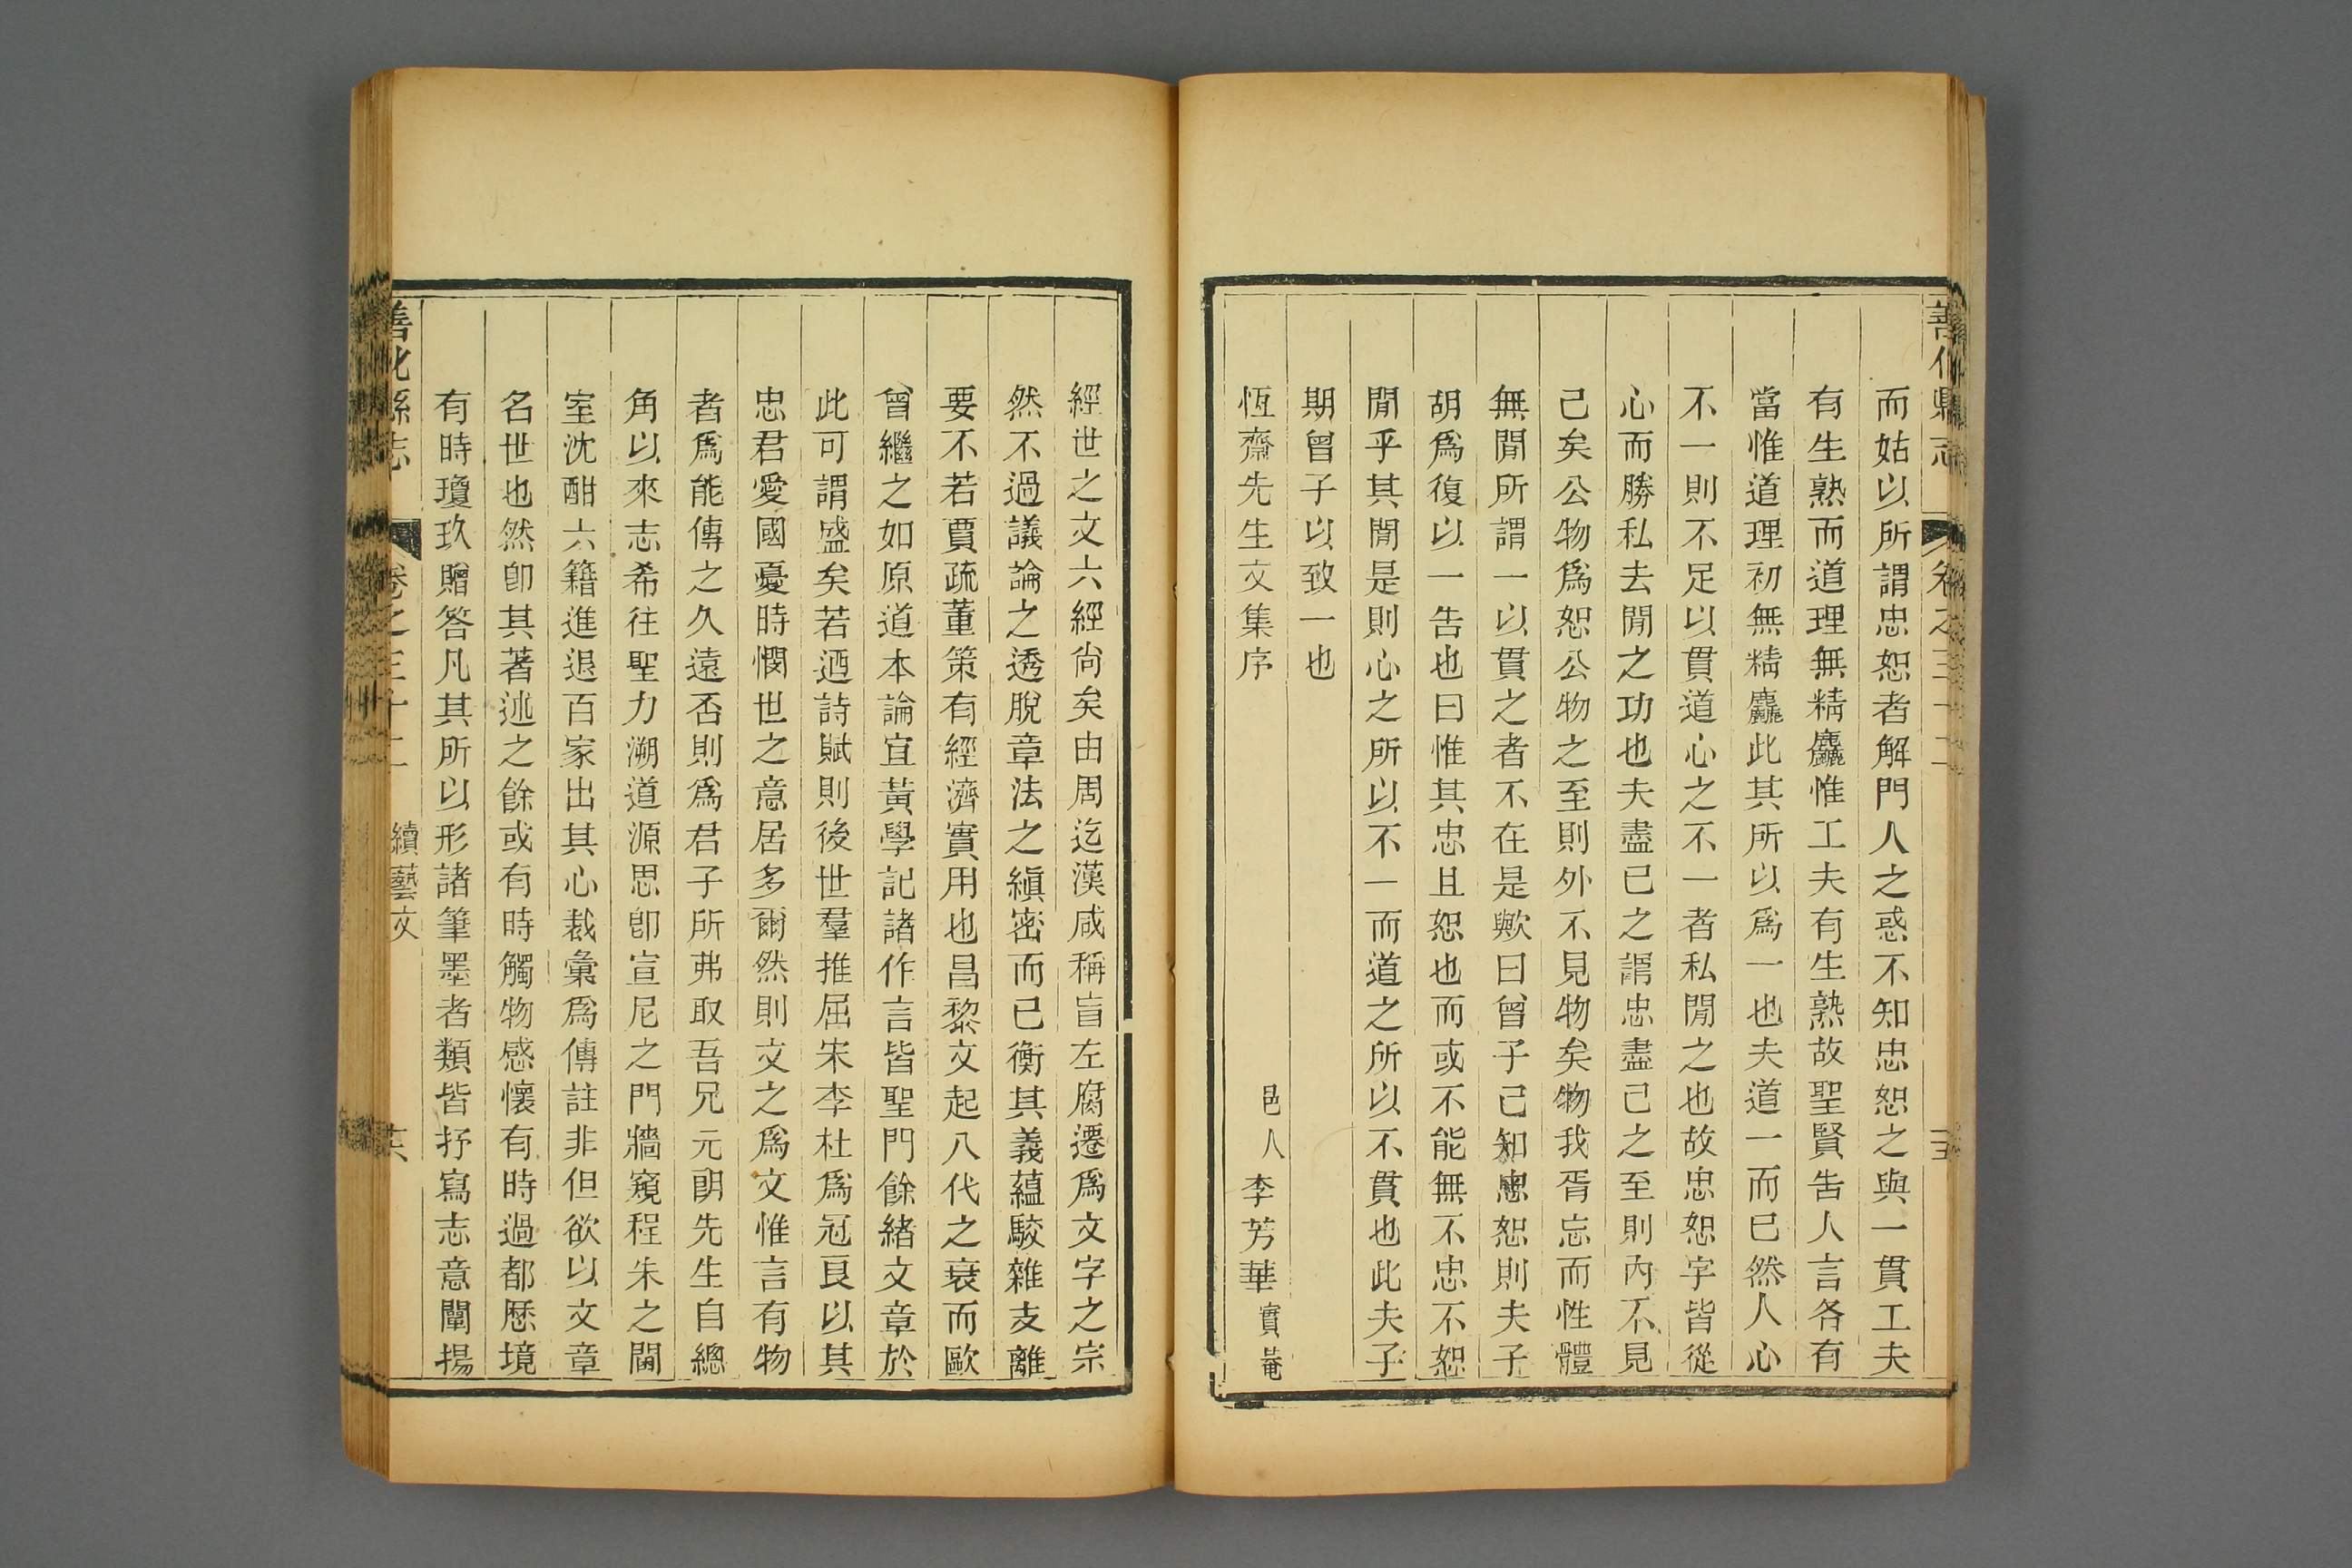 善化縣志
卷之三十二
而姑以所謂忠恕者解門人之惑不知忠恕之與一貫工夫
有生熟而道理無精麤惟工夫有生熟故聖賢告人言各有
當惟道理初無精麤此其所以爲一也夫道一而已然人心
不一則不足以貫道心之不一者私閒之也故忠恕字皆從
心而勝私去閒之功也夫盡己之謂忠盡己之至則內不見
己矣公物爲恕公物之至則外不見物矣物我胥忘而性體
無閒所謂一以貫之者不在是歟曰曾子己知忠恕則夫子
胡爲復以一告也曰惟其忠且恕也而或不能無不忠不恕
閒乎其閒是則心之所以不一而道之所以不貫也此夫子
期曾子以致一也
恆齋先生文集序 邑人李芳華實菴
經世之文六經尚矣由周迄漢咸稱盲左腐遷爲文字之宗
然不過議論之透脫章法之縝密而已衡其義蘊駁雜支離
要不若賈疏董策有經濟實用也昌黎文起八代之衰而歐
曾繼之如原道本論宜黃學記諸作言皆聖門餘緒文章於
此可謂盛矣若迺詩賦則後世羣推屈宋李杜爲冠良以其
忠君愛國憂時憫世之意居多爾然則文之爲文惟言有物
者爲能傳之久遠否則爲君子所弗取吾兄元朗先生自總
角以來志希往聖力溯道源思卽宣尼之門牆窺程朱之閫
室沈酣六籍進退百家出其心裁彙爲傳註非但欲以文章
名世也然卽其著述之餘或有時觸物感懷有時過都歷境
有時瓊玖贈答凡其所以形諸筆墨者類皆抒寫志意闡揚
善化縣志
卷之三十二
續藝文